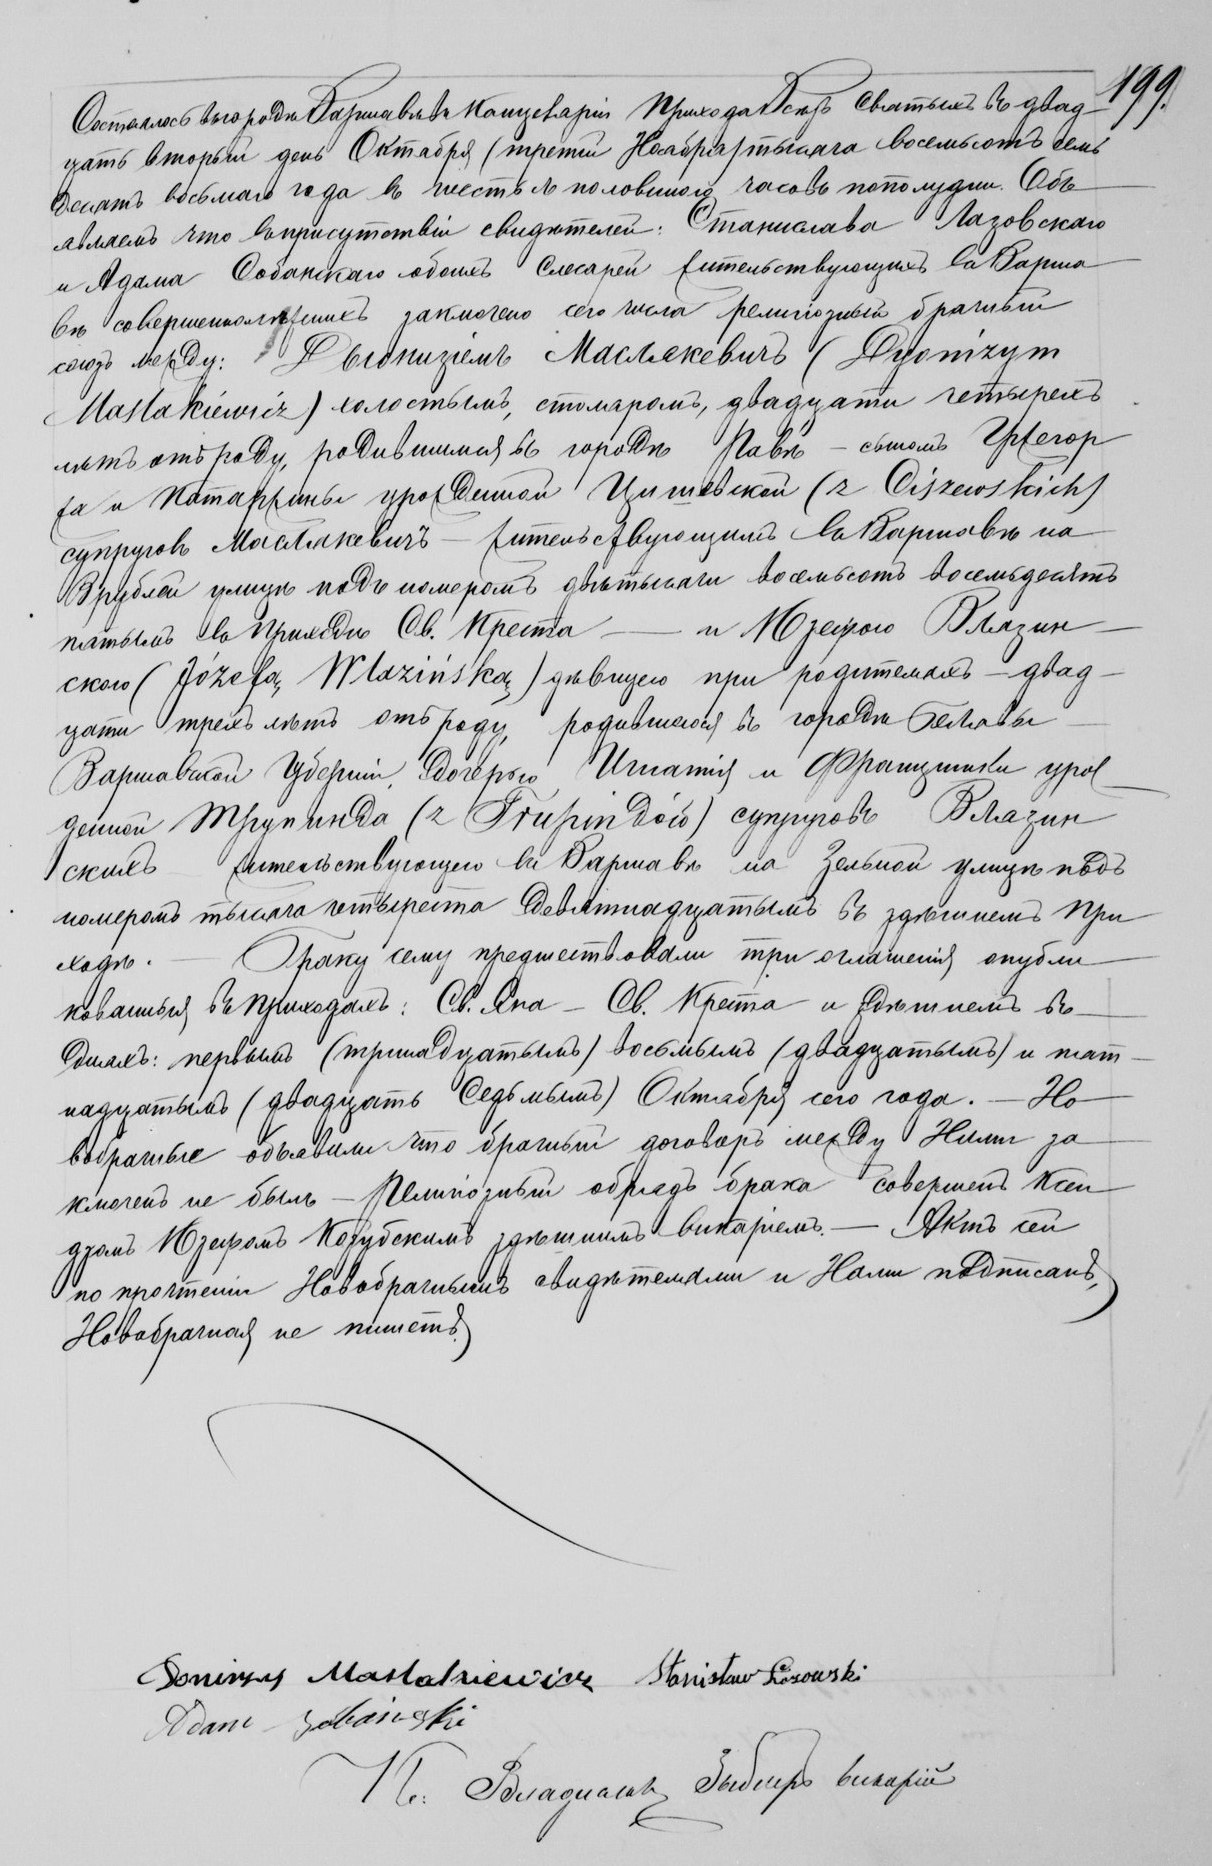 199.
Состоялось въ городѣ Варшавѣ въ Канцеляріи Прихода Всѣхъ Святыхъ въ двад-
цать вторый день Октября (третій Ноября) тысяча восемьсотъ семь
десятъ восьмаго года въ шесть съ половиною часовъ пополудни. Объ
являемъ что въ присутствіи свидѣтелей: Станислава Лазовскаго
и Адама Собанскаго обоихъ слесарей жительствующихъ въ Варша
вѣ совершеннолѣтнихъ заключено сего числа религіозный брачный
союзъ между: Дыонизіемъ Маслакевичъ (Dyonizym
Maslakiewicz) холостымъ, столяромъ, двадцати четырехъ
лѣтъ отъ роду, родившимся въ городѣ Равѣ – сыномъ Гржегор
жа и Катаржины урожденной Цишевской (z Ciszewskich)
супруговъ Маслакевичъ – жительствующимъ въ Варшавѣ на
улицѣ подъ номеромъ двѣ тысячи восемьсотъ восемьдесятъ
пятымъ въ приходѣ Св. Креста — и Юзефою Влазин-
скою (Józefą Wlazińską) дѣвицею при родителяхъ – двад-
цати трехъ лѣтъ отъ роду, родившаяся въ городѣ
Варшавской Губерніи, дочерью Игнатія и Францишки урож
денной Трупинда (z Trupindów) супруговъ Влазин
скихъ жительствующею въ Варшавѣ на Зельной улицѣ подъ
номеромъ тысяча четыреста девятнадцатымъ въ здѣшнемъ При
ходѣ. — Браку сему предшествовали три оглашенія опубли
кованныя въ приходахъ: Св. Яна – Св. Креста и здѣшнемъ въ
дняхъ: первымъ (тринадцатымъ) восьмымъ (двадцатымъ) и пят-
надцатымъ (двадцать седьмымъ) Октября сего года. — Но
вобрачные объявили что брачный договоръ между Ними за
ключенъ не былъ – Религіозный обрядъ брака совершенъ Ксен
дзомъ Юзефомъ здѣшнимъ викаріемъ. — Актъ сей
по прочтеніи Новобрачнымъ свидѣтелями и Нами подписанъ,
Новобрачная не пишетъ.
Maslakiewicz Stanisław
Adam Sobański
К. викарій